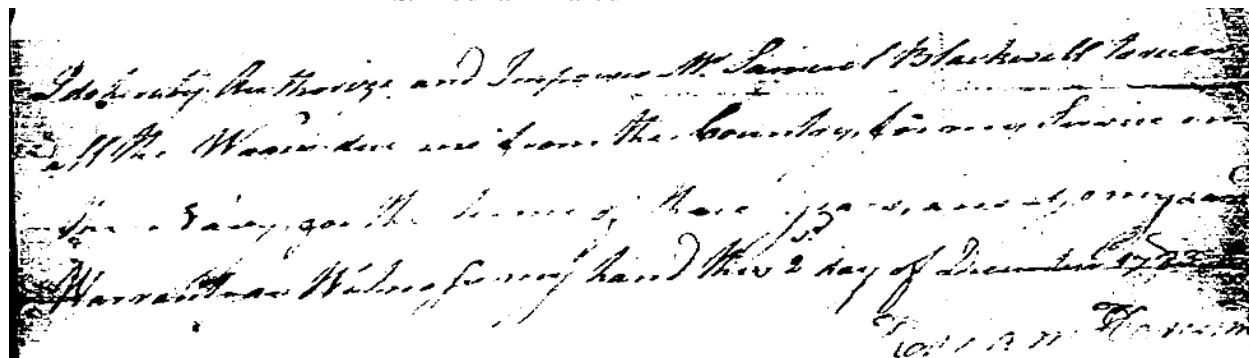 I do hereby Authorize and Impower Mr Samuel Blackwell to
all the Wages due me from the Country, for my Service in
the Navy, for the term of three years, and
Warrant as Witness my hand this 2d day of December 1783